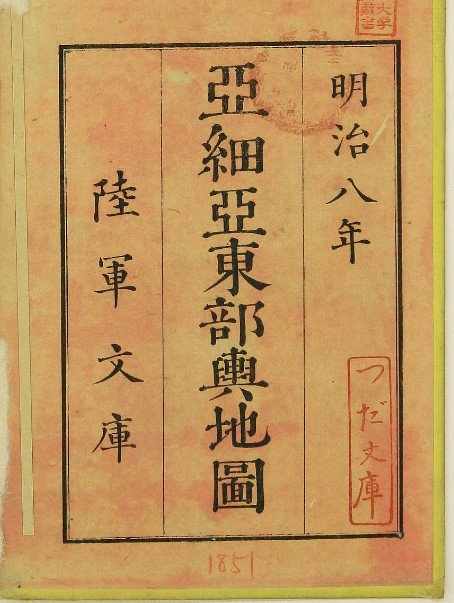 明治八年
亞細亞東部輿地圖
陸軍文庫
つだ文庫
1851